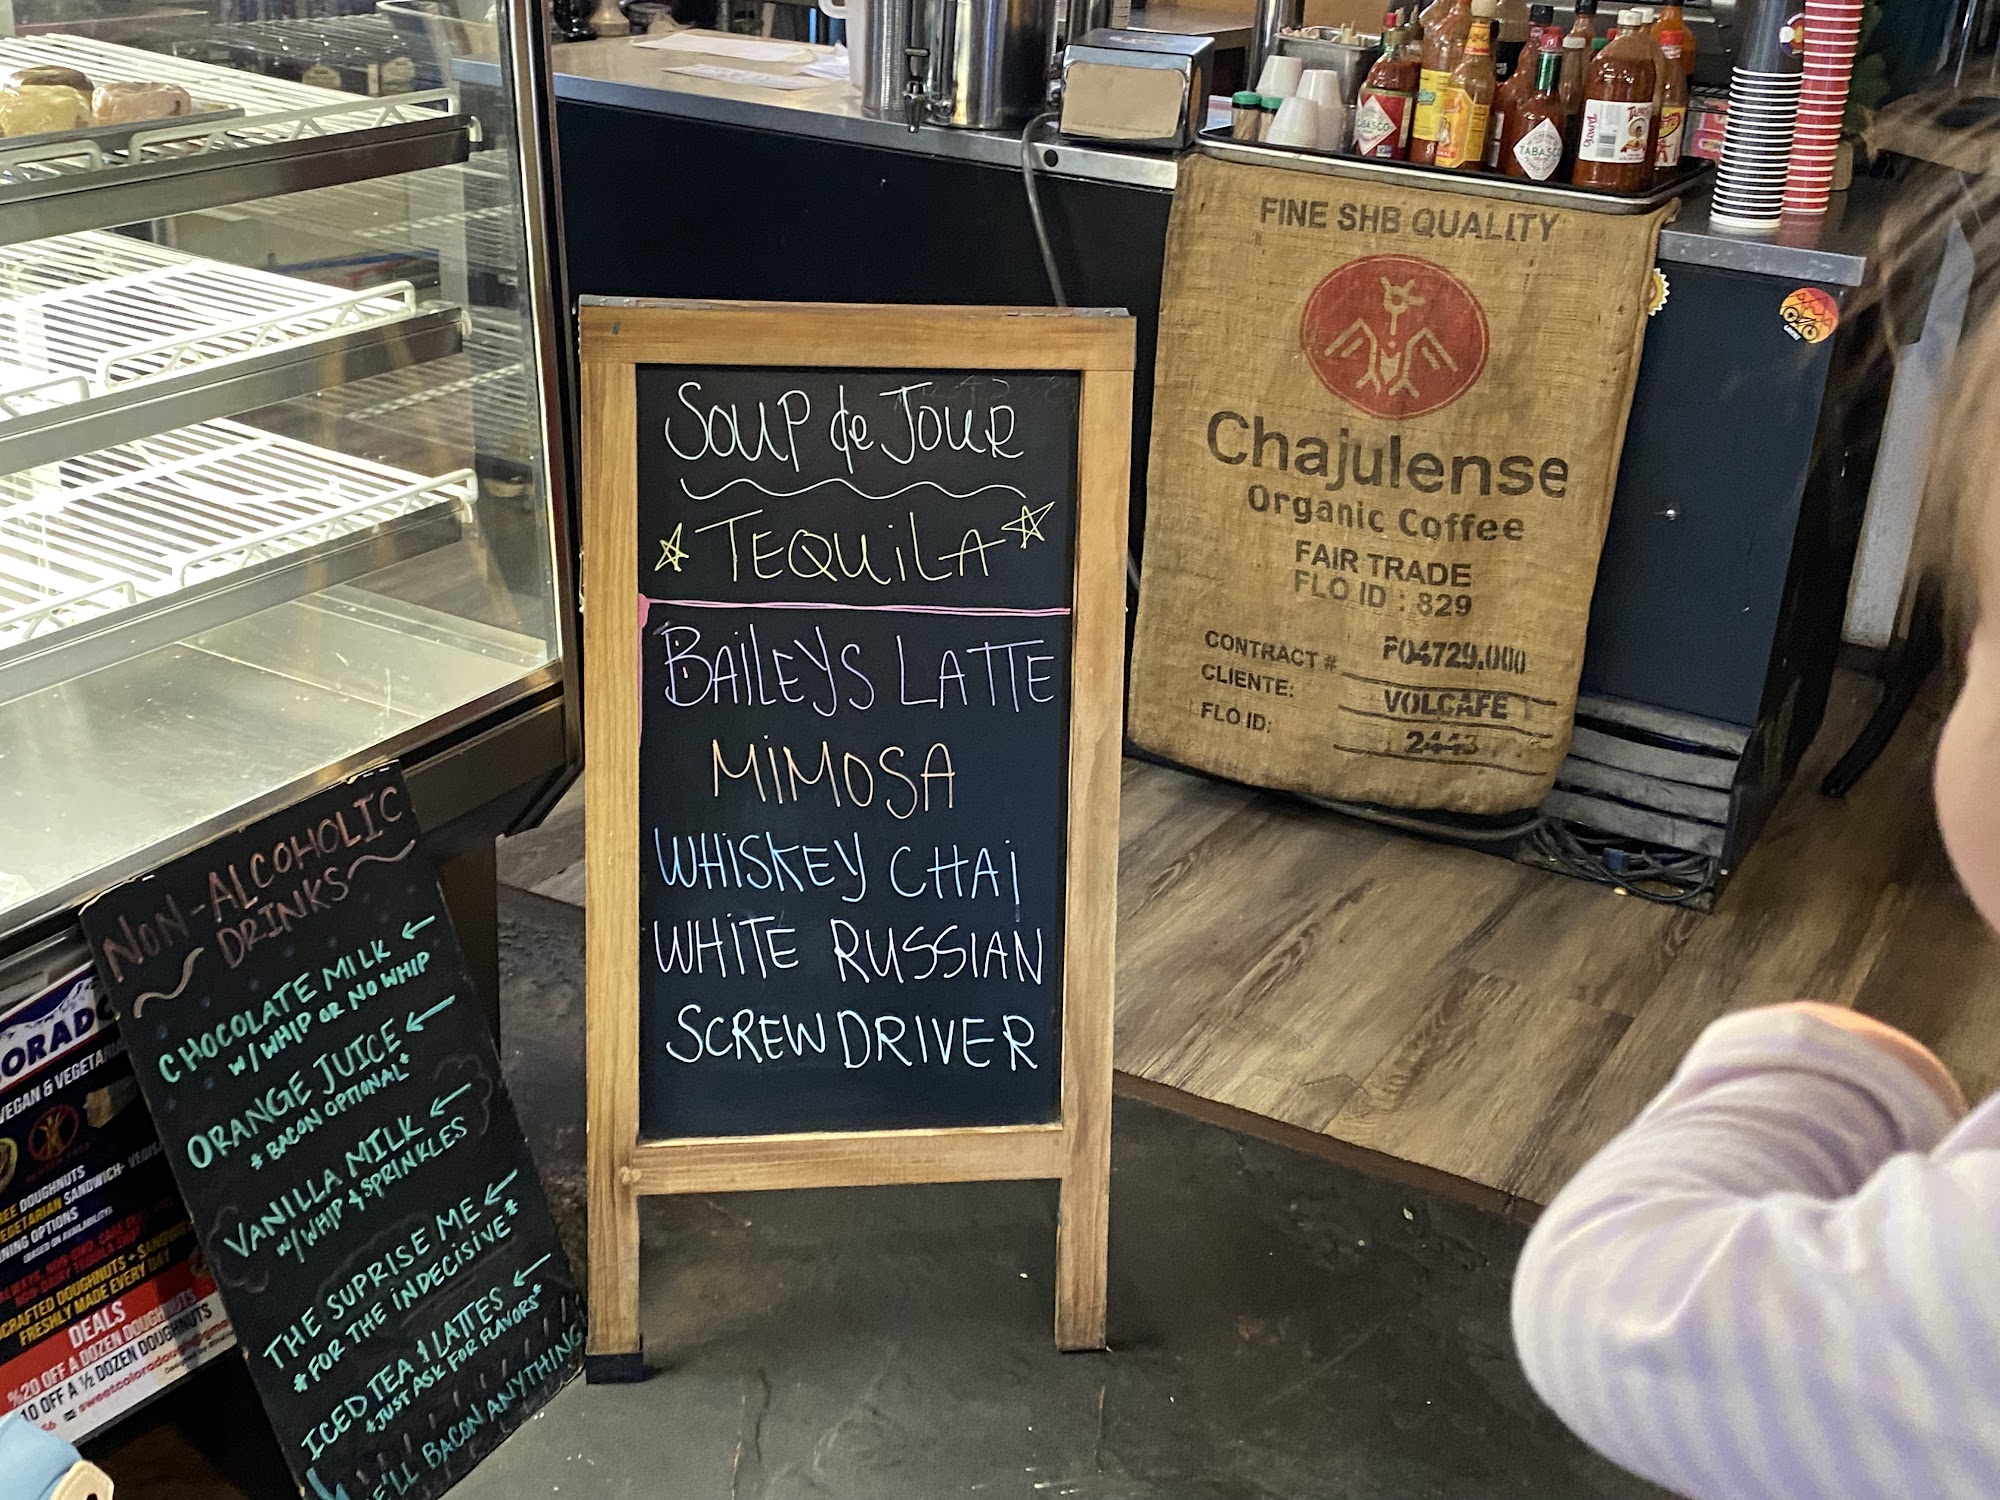 SOUP de JOUR
TEQUiLA
BAiLEYS LATTE
MiMOSA
WHiSKEY CHAi
WHiTE RUSSIAN
SCREWDRIVER
NON-ALCOHOLIC
DRINKS
CHOCOLATE MILK
W/ WHIP OR NO WHIP
ORANGE JUICE
*BACON OPTIONAL*
VANILLA MILK
W/ WHIP & SPRINKLES
THE SUPRISE ME
*FOR THE INDECISIVE*
ICED TEA & LATTES
*JUST ASK FOR FLAVORS*
BACON ANYTHING
FINE SHB QUALITY
Chajulense
Organic Coffee
FAIR TRADE
FLO ID : 829
CONTRACT # P04729.000
CLIENTE: VOLCAFE
FLO ID: 2443
TABASCO
TABASCO
VEGAN & VEGETA
DOUGHNUTS
SANDWICH
OPTIONS
DOUGHNUTS + SANDW
FRESHLY MADE EVERY DAY
DEALS
%20 OFF A DOZEN DOUGHNUTS
10 OFF A ½ DOZEN DOUGHNUTS